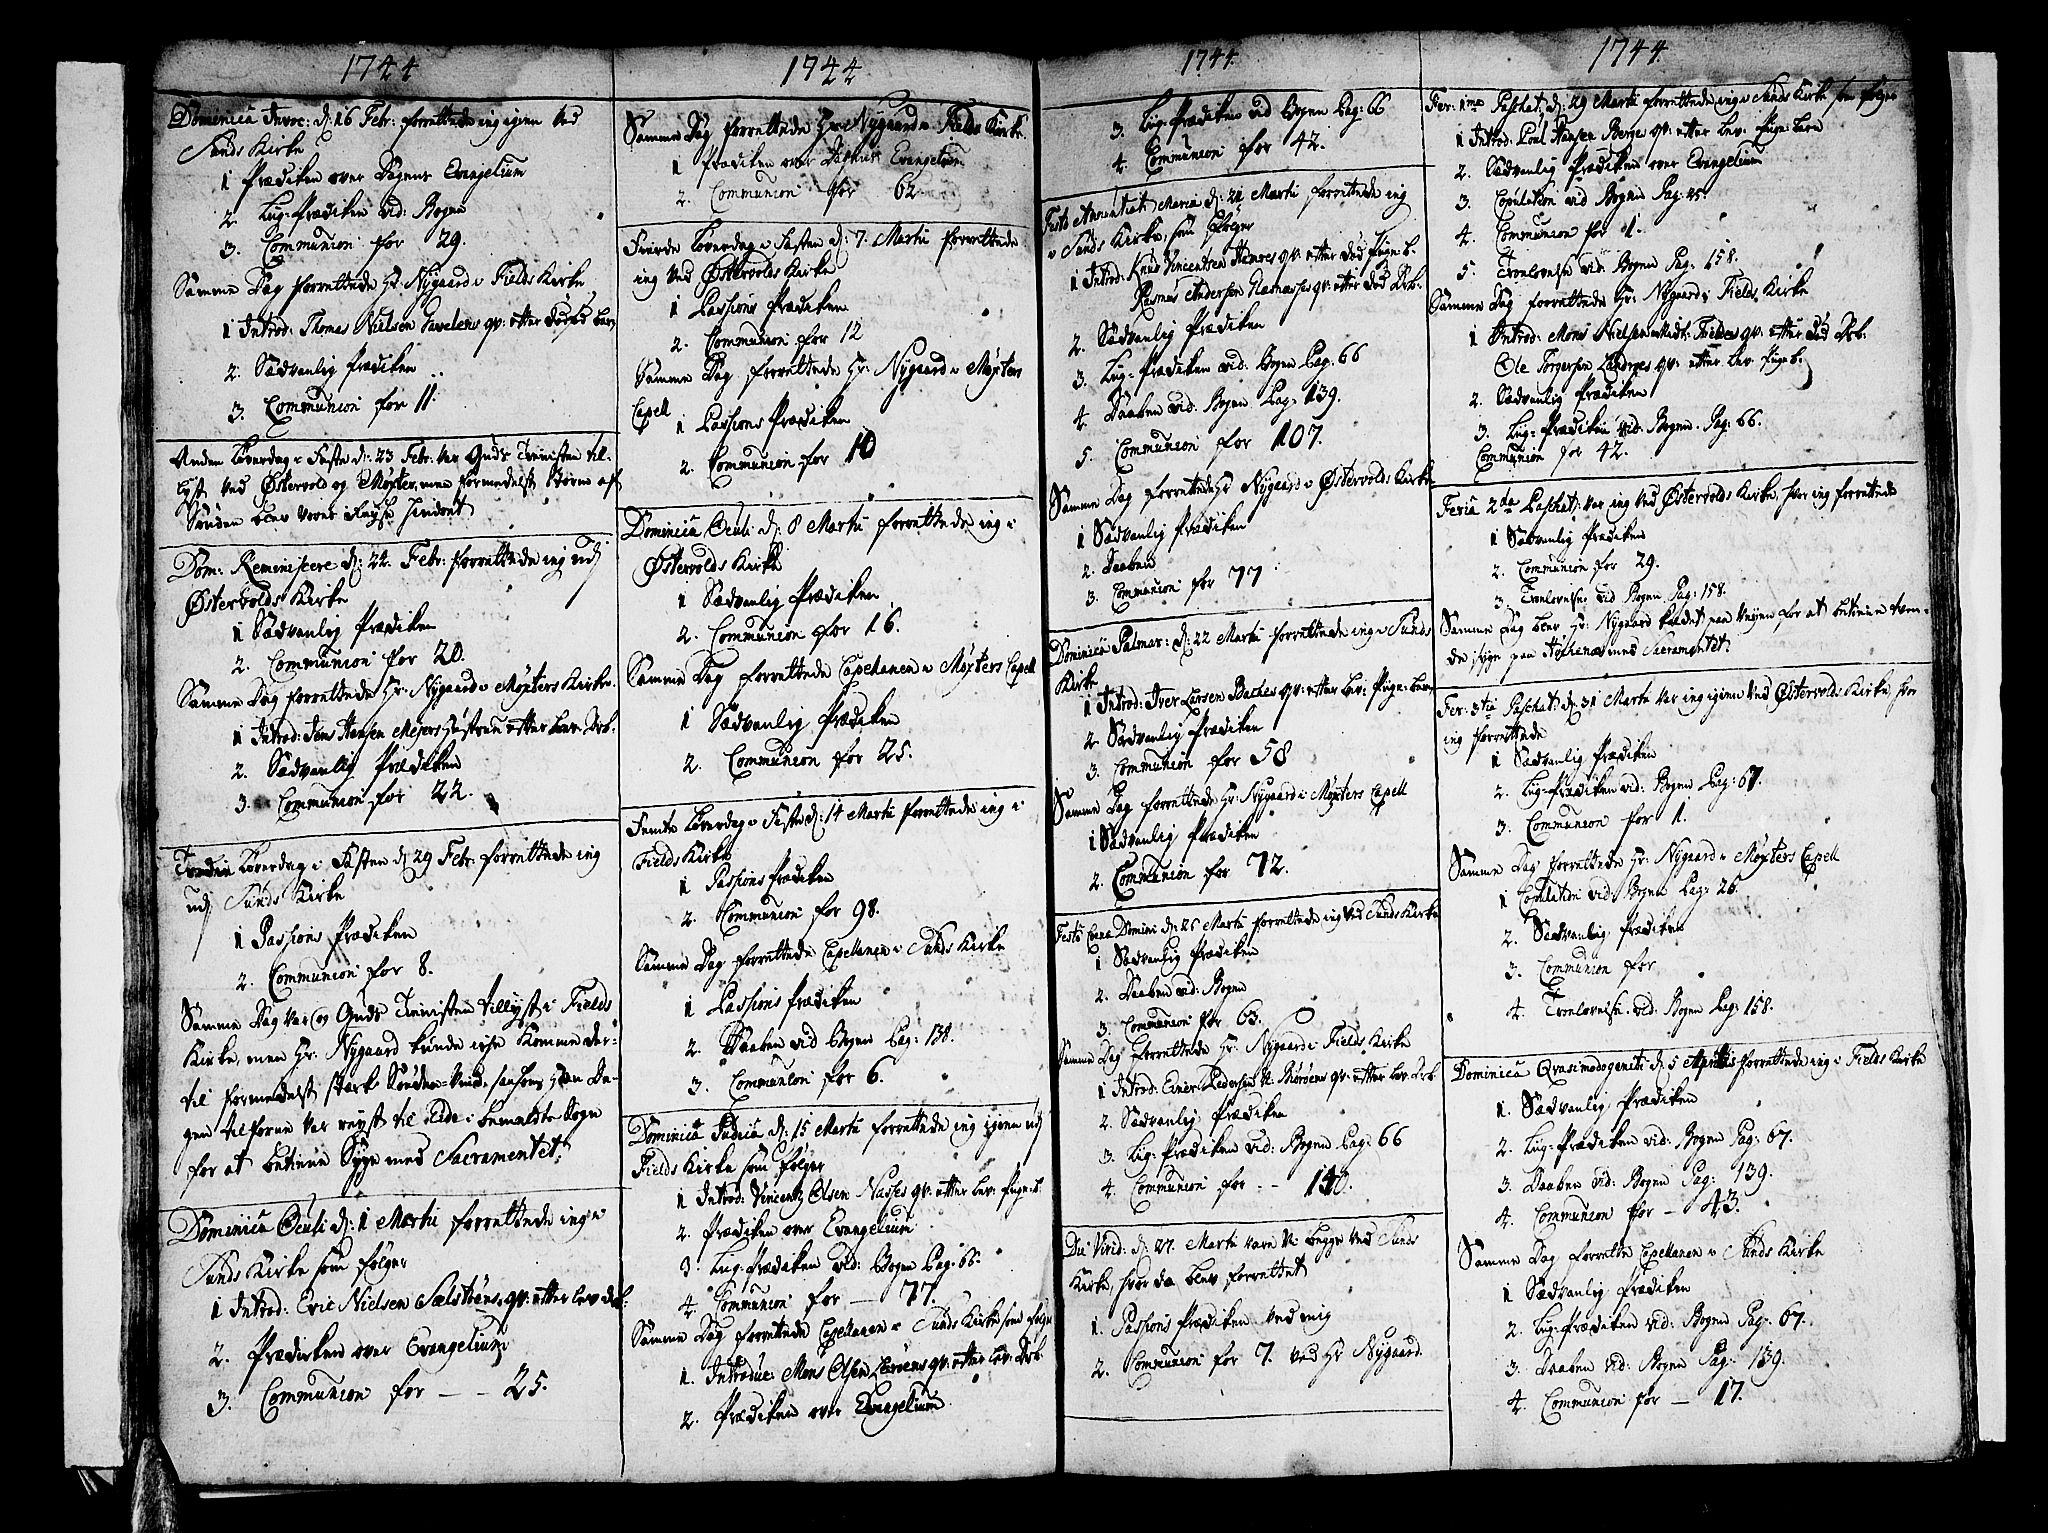 1744
Dominica Invoc: d: 16 Febr: forrettede ieg igien ved
Sunds Kirke
1 Prædiken over Dagens Evangelium
2. Liig-Prædiken vid: Bogen
3. Communion for 29.
Samme Dag forrettede Hr: Nygaard i Fields Kirke
1 Introd: Thomas Nielsen qv: efter
2. Sædvanlig Prædiken
3. Communion for 11.
Anden Løverdag i Faste d: 23 Febr: var Guds Tienisten til-
lyst ved Østervold og Møxter, men formedelst Storm af
Sønden blev
Dom: Reminiscere d: 24. Febr: forrettede ieg udj
Østervolds Kirke
1 Sædvanlig Prædiken
2. Communion for 20.
Samme Dag forrettede Hr: Nygaard i Møxters Kirke.
1 Introd: Jens Hansen Meyers Hustrue efter lev: Drb:
2. Sædvanlig Prædiken
3. Communion for 22.
Tredie Løverdag i Fasten d: 29 Febr: forrettede ieg
udj Sunds Kirke
1 Passions Prædiken
2. Communion for 8.
Samme Dag var og Guds Tienisten tillyst i Fields
Kirke, men Hr: Nygaard kunde icke komme der-
til formedelst stærk Sønden-Vind, saasom Han Da-
gen tilforne var reyst til Eide i bemeldte Sogn
for at betiene Syge med Sacramentet.
Dominica Oculi d: 1 Martii forrettede ieg i
Sunds Kirke som følger
1 Introd: Eric Nielsen qv: efter lev: Drb:
2. Prædicken over Evangelium
3. Communion for - - 25.
1744
Samme Dag forrettede Hr: Nygaard i Fields Kirke.
1 Prædiken over Dagens Evangelium
2. Communion for 62
Fierde Løverdag i Fasten d: 7. Martii forrettede
ieg ved Østervolds Kirke
1 Passions Prædiken
2. Communion for 12
Samme Dag forrettede Hr: Nygaard i Møxters
Capell
1 Passions Prædiken
2. Communion for 10
Dominica Oculi d: 8 Martii forrettede ieg i
Østervolds Kirke
1 Sædvanlig Prædiken
2. Communion for 16.
Samme Dag forrettede Capellanen i Møxters Capell
1 Sædvanlig Prædiken
2. Communion for 25.
Femte Løverdag i Faste d: 14 Martii forrettede ieg i
Fields Kirke
1 Passions Prædiken
2. Communion for 98.
Samme Dag forrettede Capellanen i Sunds Kirke
1 Passions Prædiken
2. Daaben vid Bogen Pag: 138.
3. Communion for 6.
Dominica Judica d: 15 Martii forrettede ieg igien udj
Fields Kirke som følger
1 Introd: Vincentz Olsen qv: efter lev: Pige-b.
2. Prædiken over Evangelium
3. Liig-Prædiken vid: Bogen Pag: 66.
4. Communion for — 77.
Samme Dag forrettede Capellanen i Sunds Kirke som følger
1. Introduc: Mons Olsen qv: efter lev: Drb:
2. Prædiken over Evangelium.
1744.
3. Liig-Prædiken vid Bogen Pag: 66
4. Communion for 42.
Festo Annunciat: Mariæ d: 21 Martii forrettede ieg
i Sunds Kirke, som følger
1 Introd: Knud Vincentsen qv: efter død Pige-b:
Rasmus Andersen qv: efter død Drb:
2. Sædvanlig Prædiken
3. Liig-Prædiken vid: Bogen Pag: 66
4. Daaben vid: Bogen Pag: 139.
5. Communion for 107.
Samme Dag forrettede Hr Nygaard i Østervolds Kirke
1 Sædvanlig Prædiken
2. Daaben
3. Communion for 77
Dominica Palmar: d: 22 Martii forrettede ieg i Sunds
Kirke
1 Introd: Iver Larsen Baches qv: efter lev: Pige-barn
2 Sædvanlig Prædiken
3. Communion for 58
Samme Dag forrettede Hr: Nygaard i Møxters Capell
1 Sædvanlig Prædiken
2. Communion for 72.
Festo Coena Domini d: 26 Martii forrettede ieg ved Sunds Kirke
1 Sædvanlig Prædiken
2. Daaben vid: Bogen
3. Communion for 63.
Samme Dag forrettede Hr: Nygaard i Fields Kirke
1 Introd: Einer Pedersen qv: efter lev: Drb:
2. Sædvanlig Prædiken
3. Liig-Prædiken vid: Bogen Pag: 66
4. Communion for - - 110.
Die Virid: d: 27. Martii vare vi begge ved Sunds
Kirke, hvor da blev forrettet
1. Passions Prædiken ved mig
2. Communion for 7. ved Hr Nygaard.
1744.
Fer: 1ma Paschat: d: 29 Martii forrettede ieg i Sunds Kirke som følger
1 Introd: Poul Hansen Berge qv: efter lev: Pige-barn
2. Sædvanlig Prædiken over Evangelium
3. Copulation vid Bogen Pag: 25.
4. Communion for 1.
5. Trolovelse vid: Bogen Pag: 158.
Samme Dag forrettede Hr: Nygaard i Fields Kirke
1 Introd: Mons Nielsen qv: efter død Drb:
Ole Torgersen qv: efter lev: Pige-b:
2. Sædvanlig Prædiken
3. Liig-Prædiken vid: Bogen Pag: 66.
Communion for 42.
Feria 2da Paschat: var ieg ved Østervolds Kirke, hvor ieg forrettede
1 Sædvanlig Prædiken
2. Communion for 29.
3 Trolovelse vid Bogen Pag: 158.
Samme Dag blev Hr: Nygaard kaldet paa Veyen for at betiene tven-
de Syge paa med Sacramentet.
Fer: 3tia Paschat: d: 31 Martii var ieg igien ved Østervolds Kirke, hvor
ieg forrettede
1 Sædvanlig Prædiken
2. Liig-Prædiken vid: Bogen Pag: 67.
3. Communion for 1.
Samme Dag forrettede Hr: Nygaard i Møxters Capell
1 Copulation vid: Bogen Pag: 26
2. Sædvanlig Prædiken
3. Communion for
4. Trolovelse vid: Bogen Pag: 158.
Dominica Qvasimodogeniti d: 5 Aprilis forrettede ieg i Fields Kirke
1. Sædvanlig Prædiken
2. Liig-Prædiken vid: Bogen Pag: 67.
3. Daaben vid: Bogen Pag: 139.
4. Communion for — 43.
Samme Dag forrettede Capellanen i Sunds Kirke
1 Sædvanlig Prædiken
2. Liig-Prædiken vid: Bogen Pag: 67.
3. Daaben vid: Bogen Pag: 139.
4. Communion for — 17.